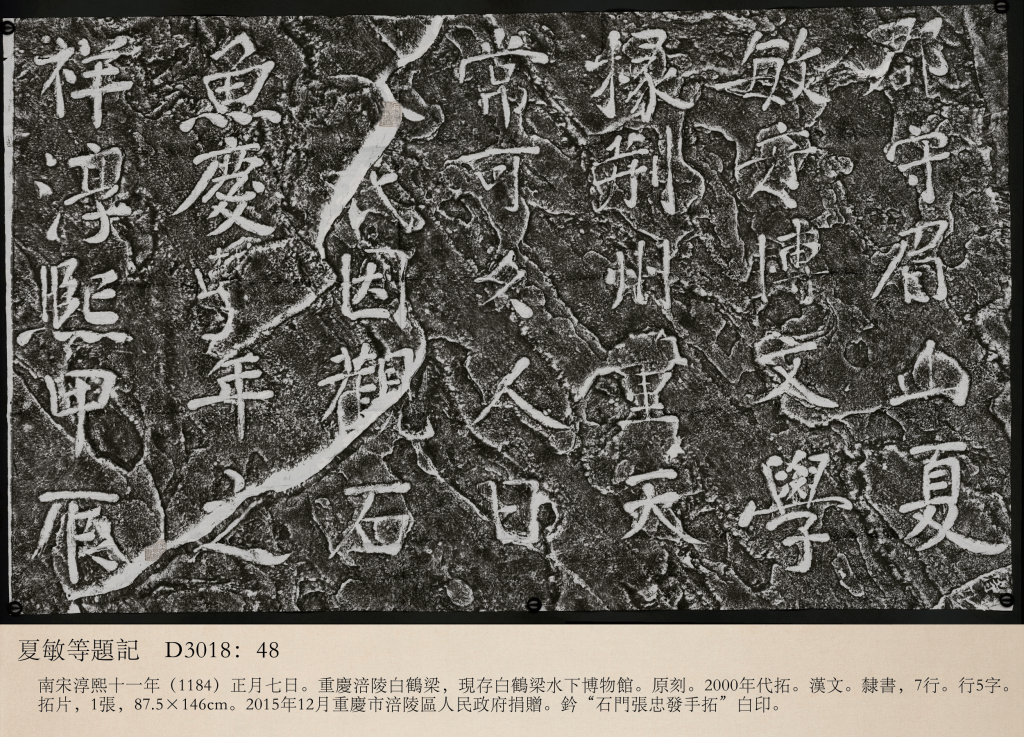 郡守眉山夏
敏彦博文學
掾荊州董天
常可久人日
因觀石
魚慶豐年之
祥淳熙甲辰
夏敏等題記 D3018：48
南宋淳熙十一年（1184）正月七日。重慶涪陵白鶴梁，現存白鶴梁水下博物館。原刻。2000年代拓。漢文。隸書，7行。行5字。
拓片，1張，87.5×146cm。2015年12月重慶市涪陵區人民政府捐贈。鈐“石門張忠發手拓”白印。